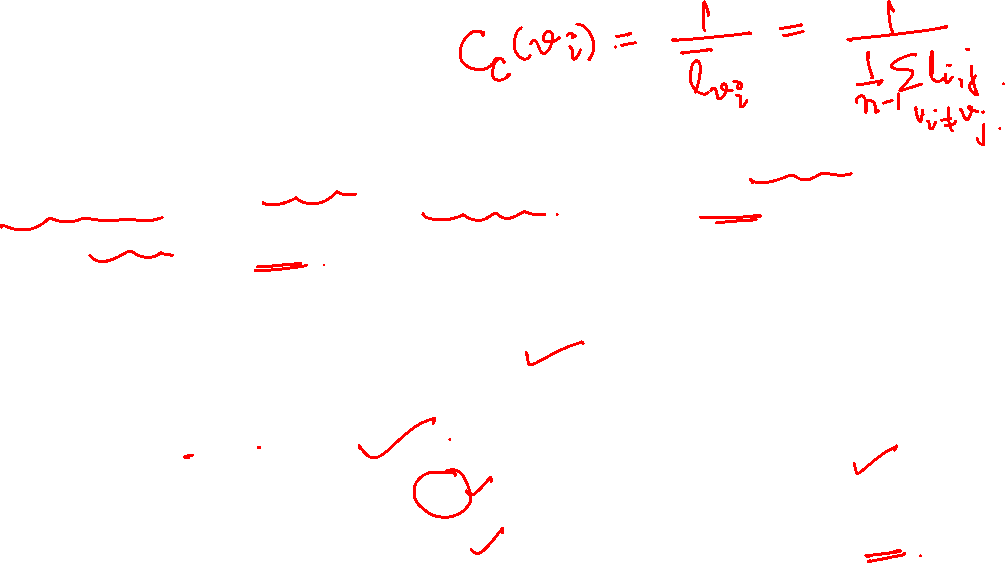 C_c(v_i) = 1 / l̄_{v_i} = 1 / (1/(n-1) Σ_{v_i≠v_j} l_{i,j}).